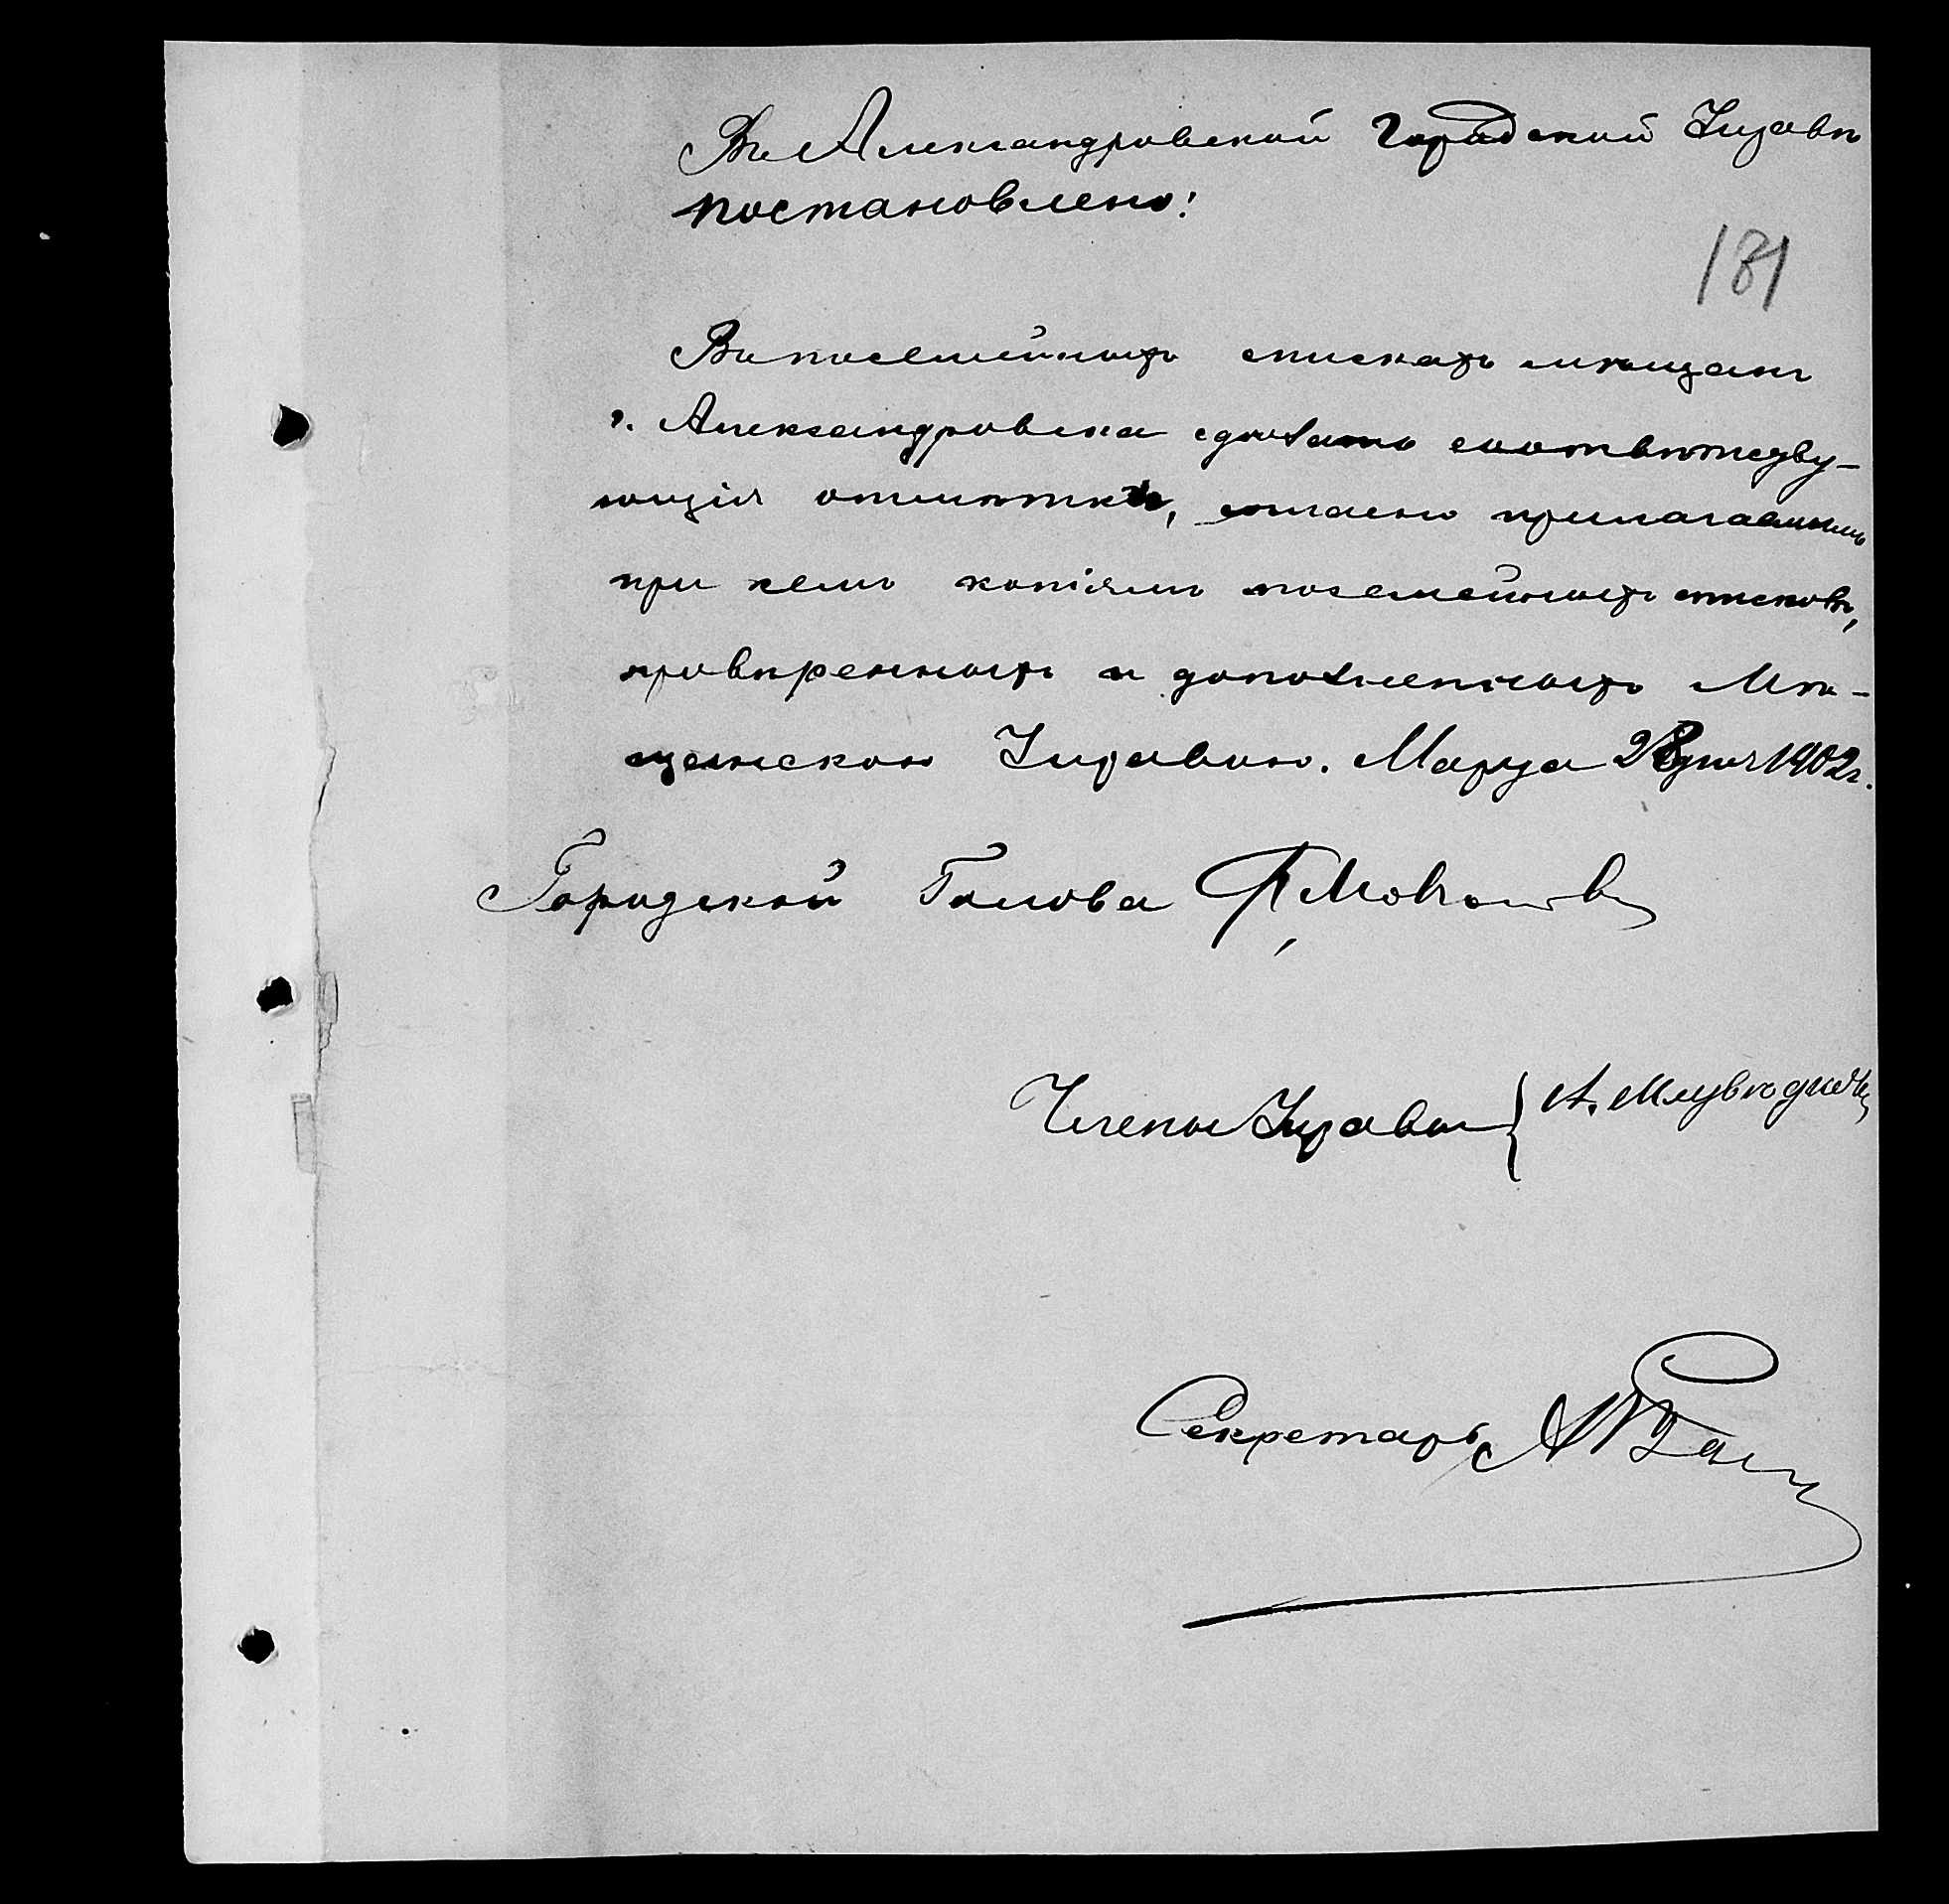 Въ Александровской Городской Управѣ
постановлено:
181
Въ посемейныхъ спискахъ мѣщанъ
г. Александровска сдѣлать соотвѣтству-
ющія отмѣтки, согласно прилагаемымъ
при семъ копіямъ посемейныхъ списковъ,
провѣренныхъ и дополненныхъ Мѣ-
щанскою Управою. Марта 28 дня 1902 г.
Городской Голова Ф. Мовчановъ
Члены Управы { А.
Секретарь